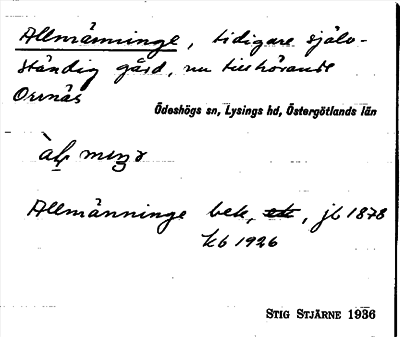 Allmänninge, tidigare själv-
ständig gård, nu tillhörande
Orrnäs
Ödeshögs sn, Lysings hd, Östergötlands län
Allmänninge bek, jb 1878
kb 1926
STIG STJÄRNE 1936